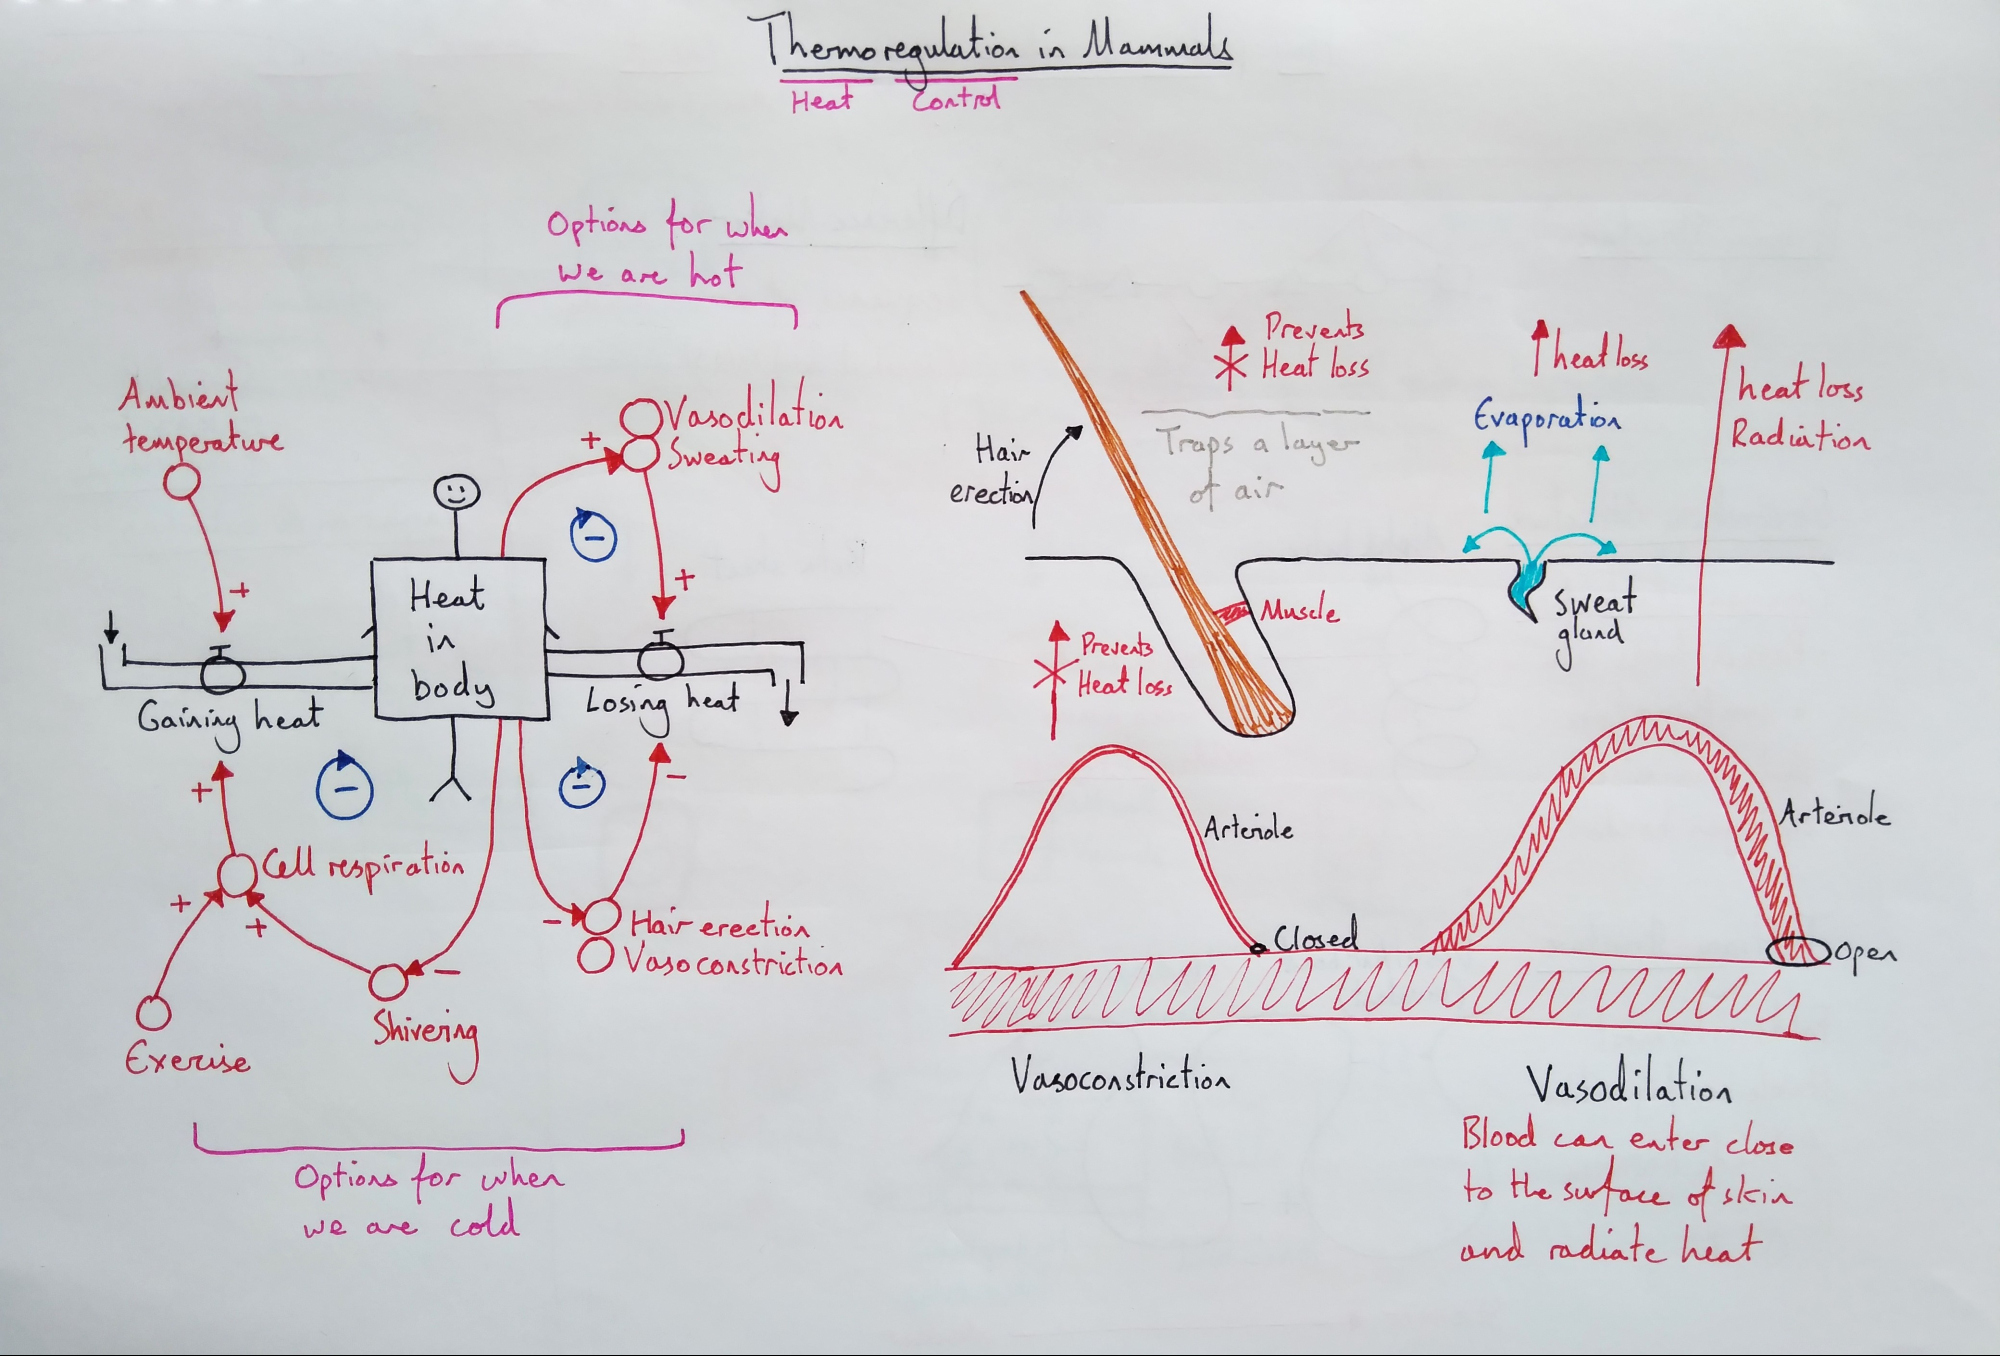 Thermoregulation in Mammals
Heat Control
Options for when
we are hot
Ambient
temperature
+
+
Vasodilation
Sweating
−
+
Heat
in
body
Gaining heat
Losing heat
−
−
+
−
Cell respiration
+
+
−
−
Hair erection
Vasoconstriction
Shivering
Exercise
Options for when
we are cold
Hair
erection
Prevents
Heat loss
Traps a layer
of air
Muscle
Prevents
Heat loss
heat loss
Evaporation
Sweat
gland
heat loss
Radiation
Arteriole
Closed
Arteriole
Open
Vasoconstriction
Vasodilation
Blood can enter close
to the surface of skin
and radiate heat